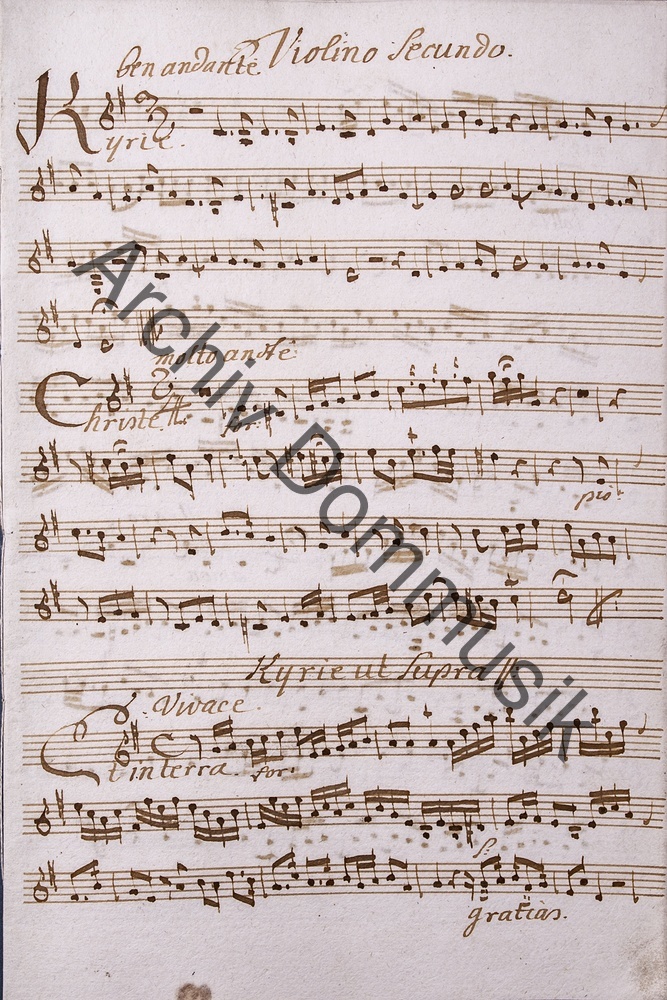 Violino Secundo.
ben andante
Kyrie.
molto andte
Christe
for:
pio:
Kyrie ut Supra
Vivace.
Et in terra. for:
gratias.
Archiv Dommusik